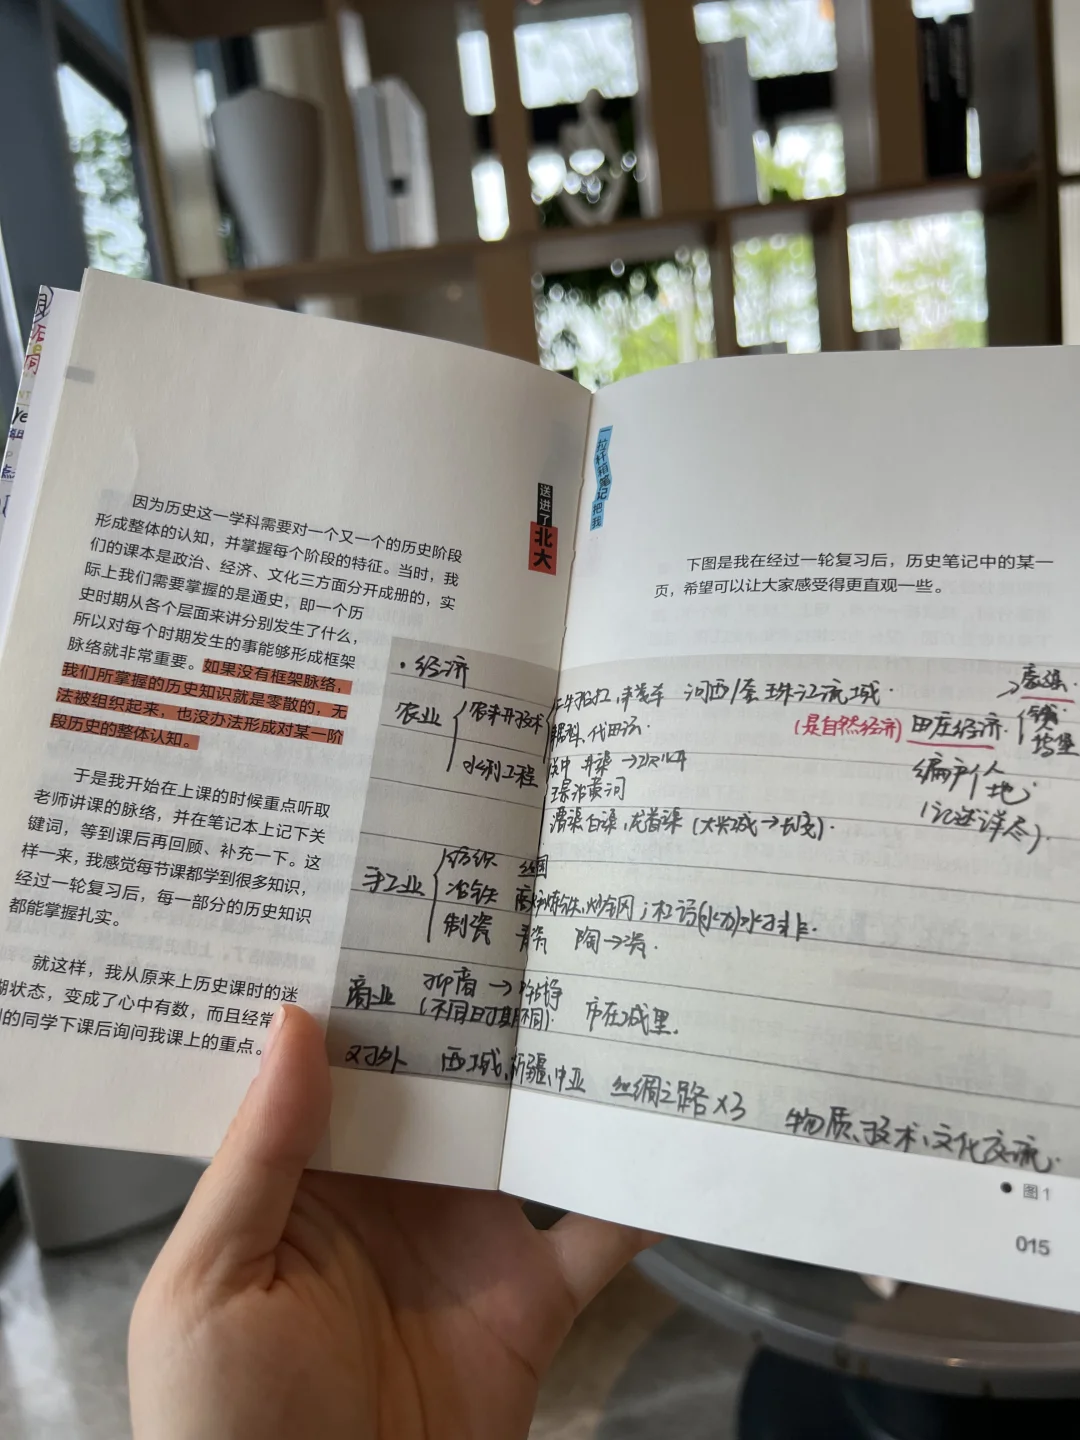 因为历史这一学科需要对一个又一个的历史阶段
形成整体的认知，并掌握每个阶段的特征。当时，我
们的课本是政治、经济、文化三方面分开成册的，实
际上我们需要掌握的是通史，即一个历
史时期从各个层面来讲分别发生了什么，
所以对每个时期发生的事能够形成框架
脉络就非常重要。如果没有框架脉络，
我们所掌握的历史知识就是零散的，无
法被组织起来，也没办法形成对某一阶
段历史的整体认知。
于是我开始在上课的时候重点听取
老师讲课的脉络，并在笔记本上记下关
键词，等到课后再回顾、补充一下。这
样一来，我感觉每节课都学到很多知识，
经过一轮复习后，每一部分的历史知识
都能掌握扎实。
就这样，我从原来上历史课时的迷
糊状态，变成了心中有数，而且经常
的同学下课后询问我课上的重点。
送进了
北大
一拉杆箱笔记把我
下图是我在经过一轮复习后，历史笔记中的某一
页，希望可以让大家感受得更直观一些。
·经济
农业
农耕技术
耦犁、代田法·
河西 珠江流域·
(是自然经济) 田庄经济·
水利工程
井渠
王景治黄河
白渠，龙首渠
编户个人
(记述详尽)·
手工业
纺织 丝绸
冶铁 高炉炼铁、炒钢；杜诗(水力)水排·
制瓷 青瓷 陶→瓷·
商业 抑商→
(不同时期不同)· 市在城里.
对外 西域、新疆、中亚 丝绸之路×3 物质、技术、文化交流·
图1
015